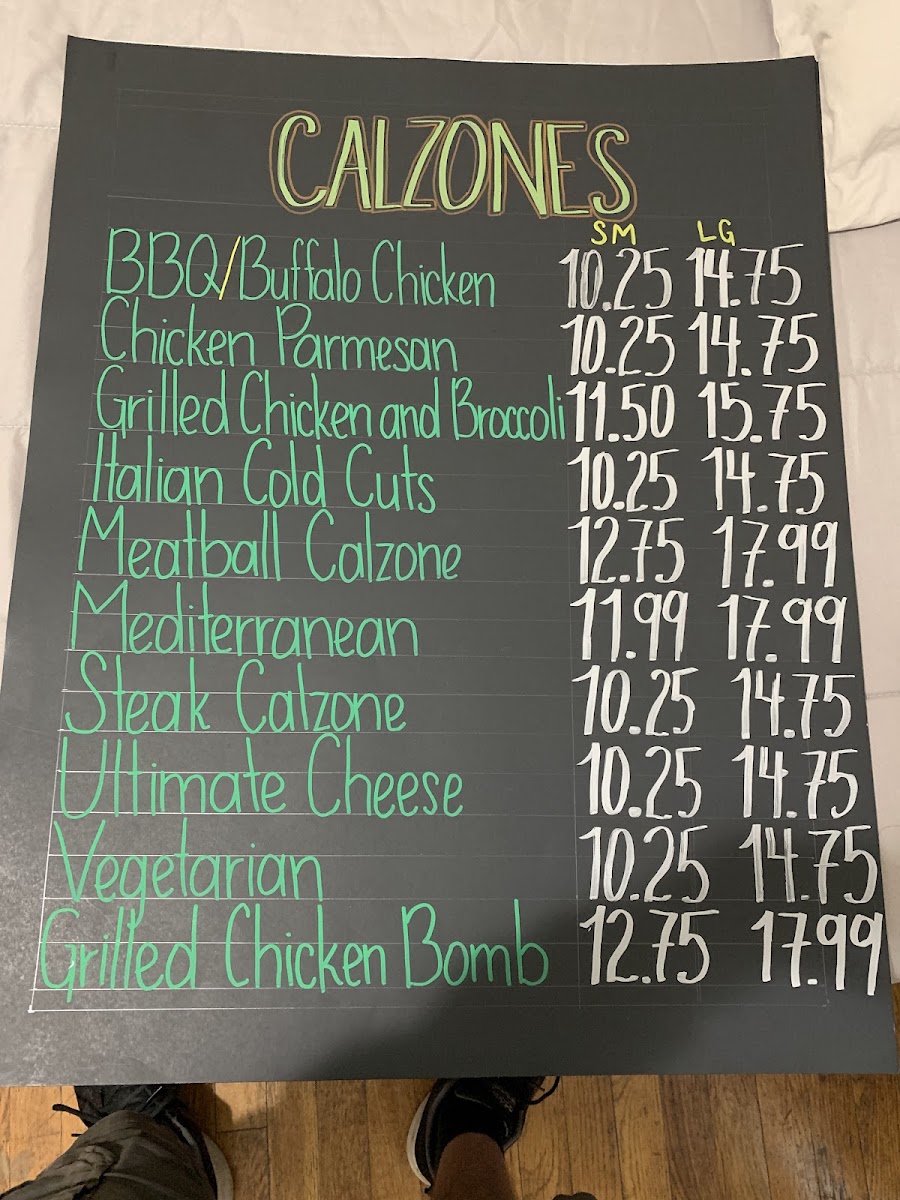 CALZONES
SM LG
BBQ/Buffalo Chicken 10.25 14.75
Chicken Parmesan 10.25 14.75
Grilled Chicken and Broccoli 11.50 15.75
Italian Cold Cuts 10.25 14.75
Meatball Calzone 12.75 17.99
Mediterranean 11.99 17.99
Steak Calzone 10.25 14.75
Ultimate Cheese 10.25 14.75
Vegetarian 10.25 14.75
Grilled Chicken Bomb 12.75 17.99